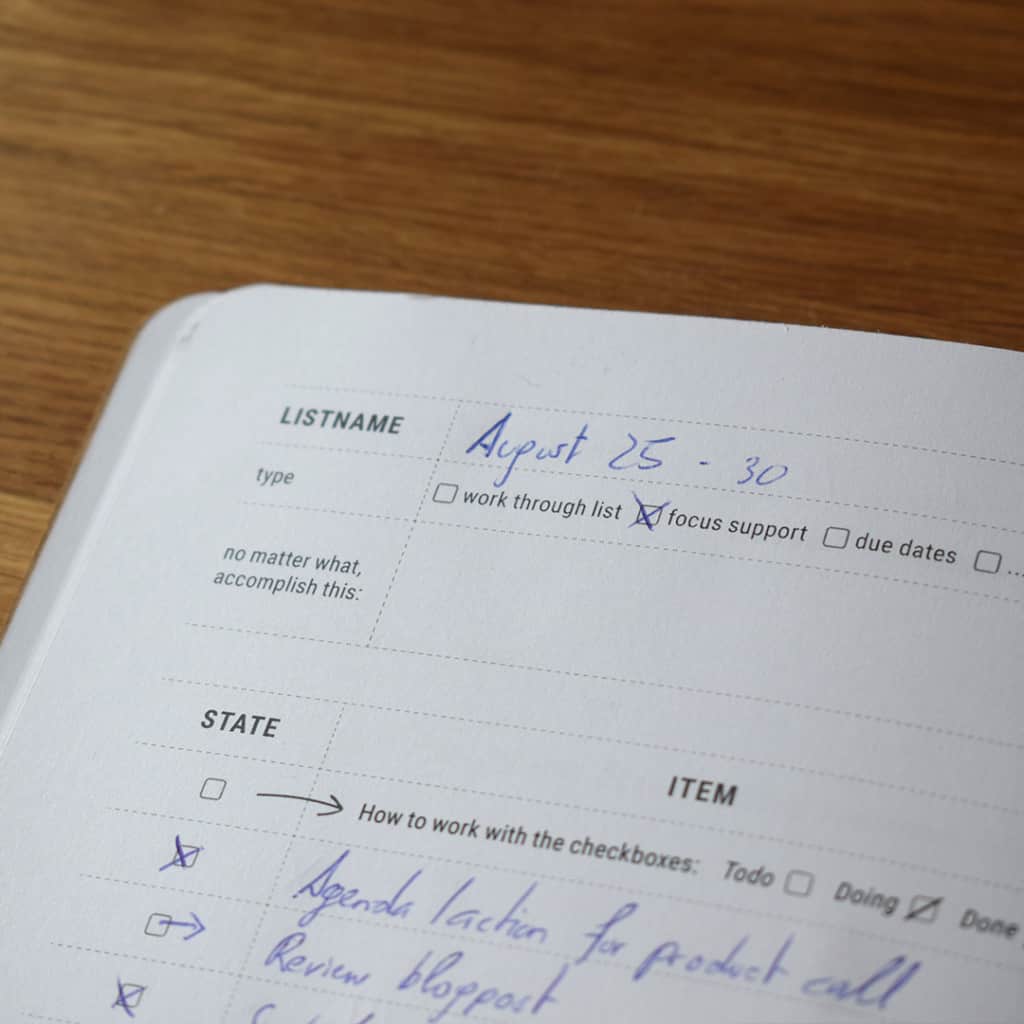 LISTNAME August 25 - 30
type work through list focus support due dates ...
no matter what,
accomplish this:
STATE ITEM
How to work with the checkboxes: Todo Doing Done
Agenda / action for product call
Review blogpost